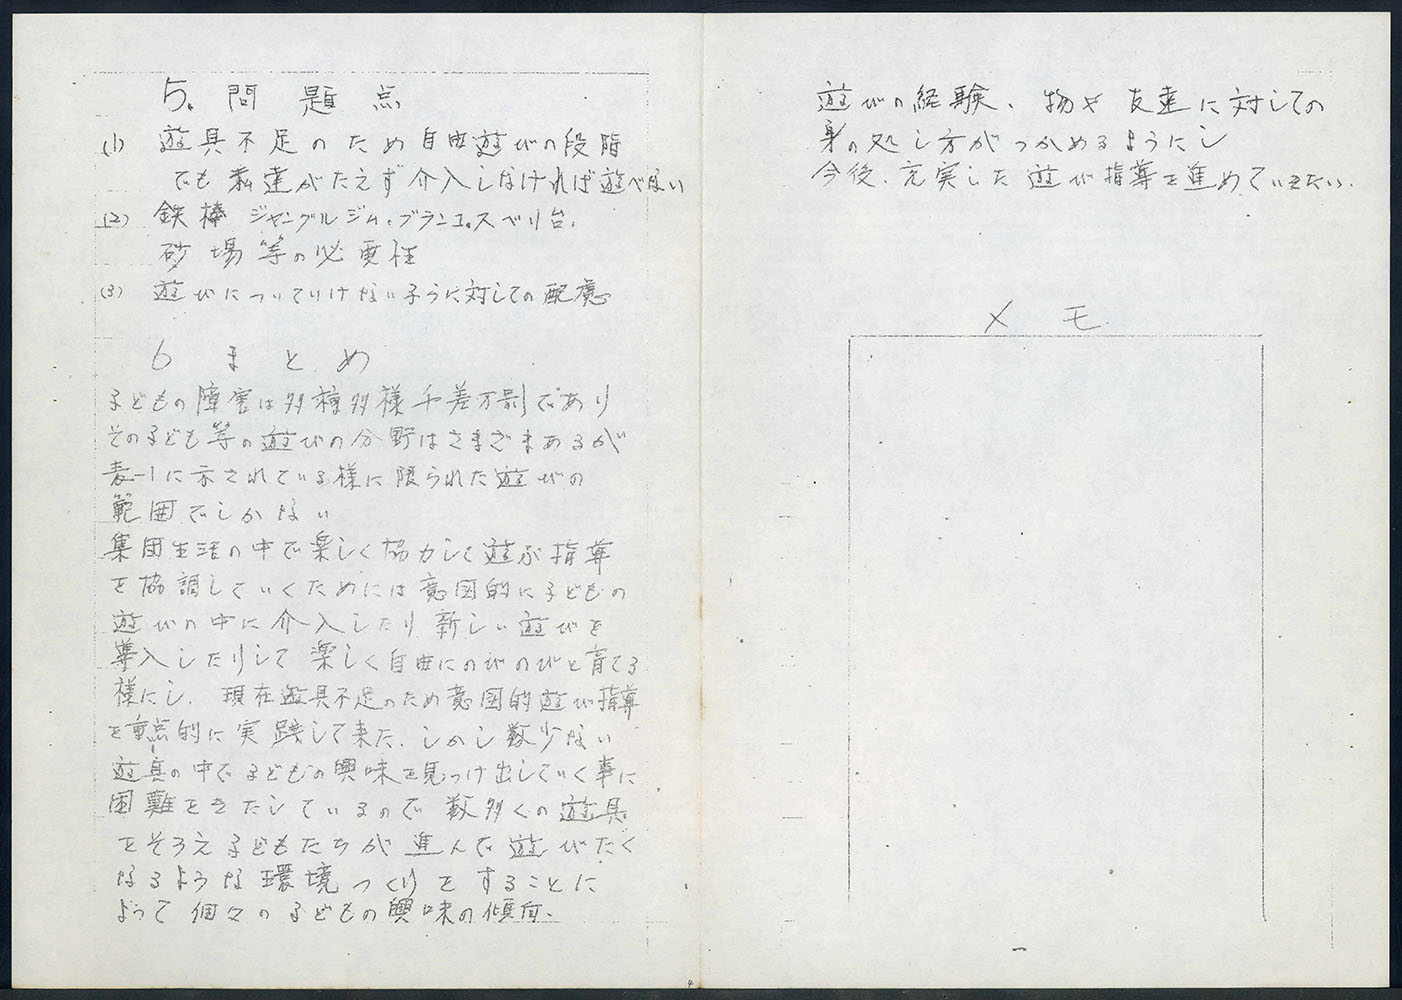 5. 問題点
(1) 遊具不足のため自由遊びの段階
でも 達がたえず介入しなければ遊べない
(2) 鉄棒 ジャングルジム、ブランコ、スベリ台、
砂場等の必要性
(3) 遊びについていけない子らに対しての配慮
6 まとめ
子どもの障害は多種多様千差万別であり
その子ども等の遊びの分野はさまざまあるが
表-1に示されている様に限られた遊びの
範囲でしかない
集団生活の中で楽しく協力して遊ぶ指導
を協調していくためには意図的に子どもの
遊びの中に介入したり新しい遊びを
導入したりして楽しく自由にのびのびと育てる
様にし、現在遊具不足のため意図的遊び指導
を重点的に実践して来た、しかし数少ない
遊具の中で子どもの興味を見つけ出していく事に
困難をきたしているので数多くの遊具
をそろえ子どもたちが進んで遊びたく
なるような環境つくりをすることに
よって個々の子どもの興味の傾向、
遊びの経験、物や友達に対しての
身の処し方がつかめるようにし
今後、充実した遊び指導を進めていきたい。
メモ
4